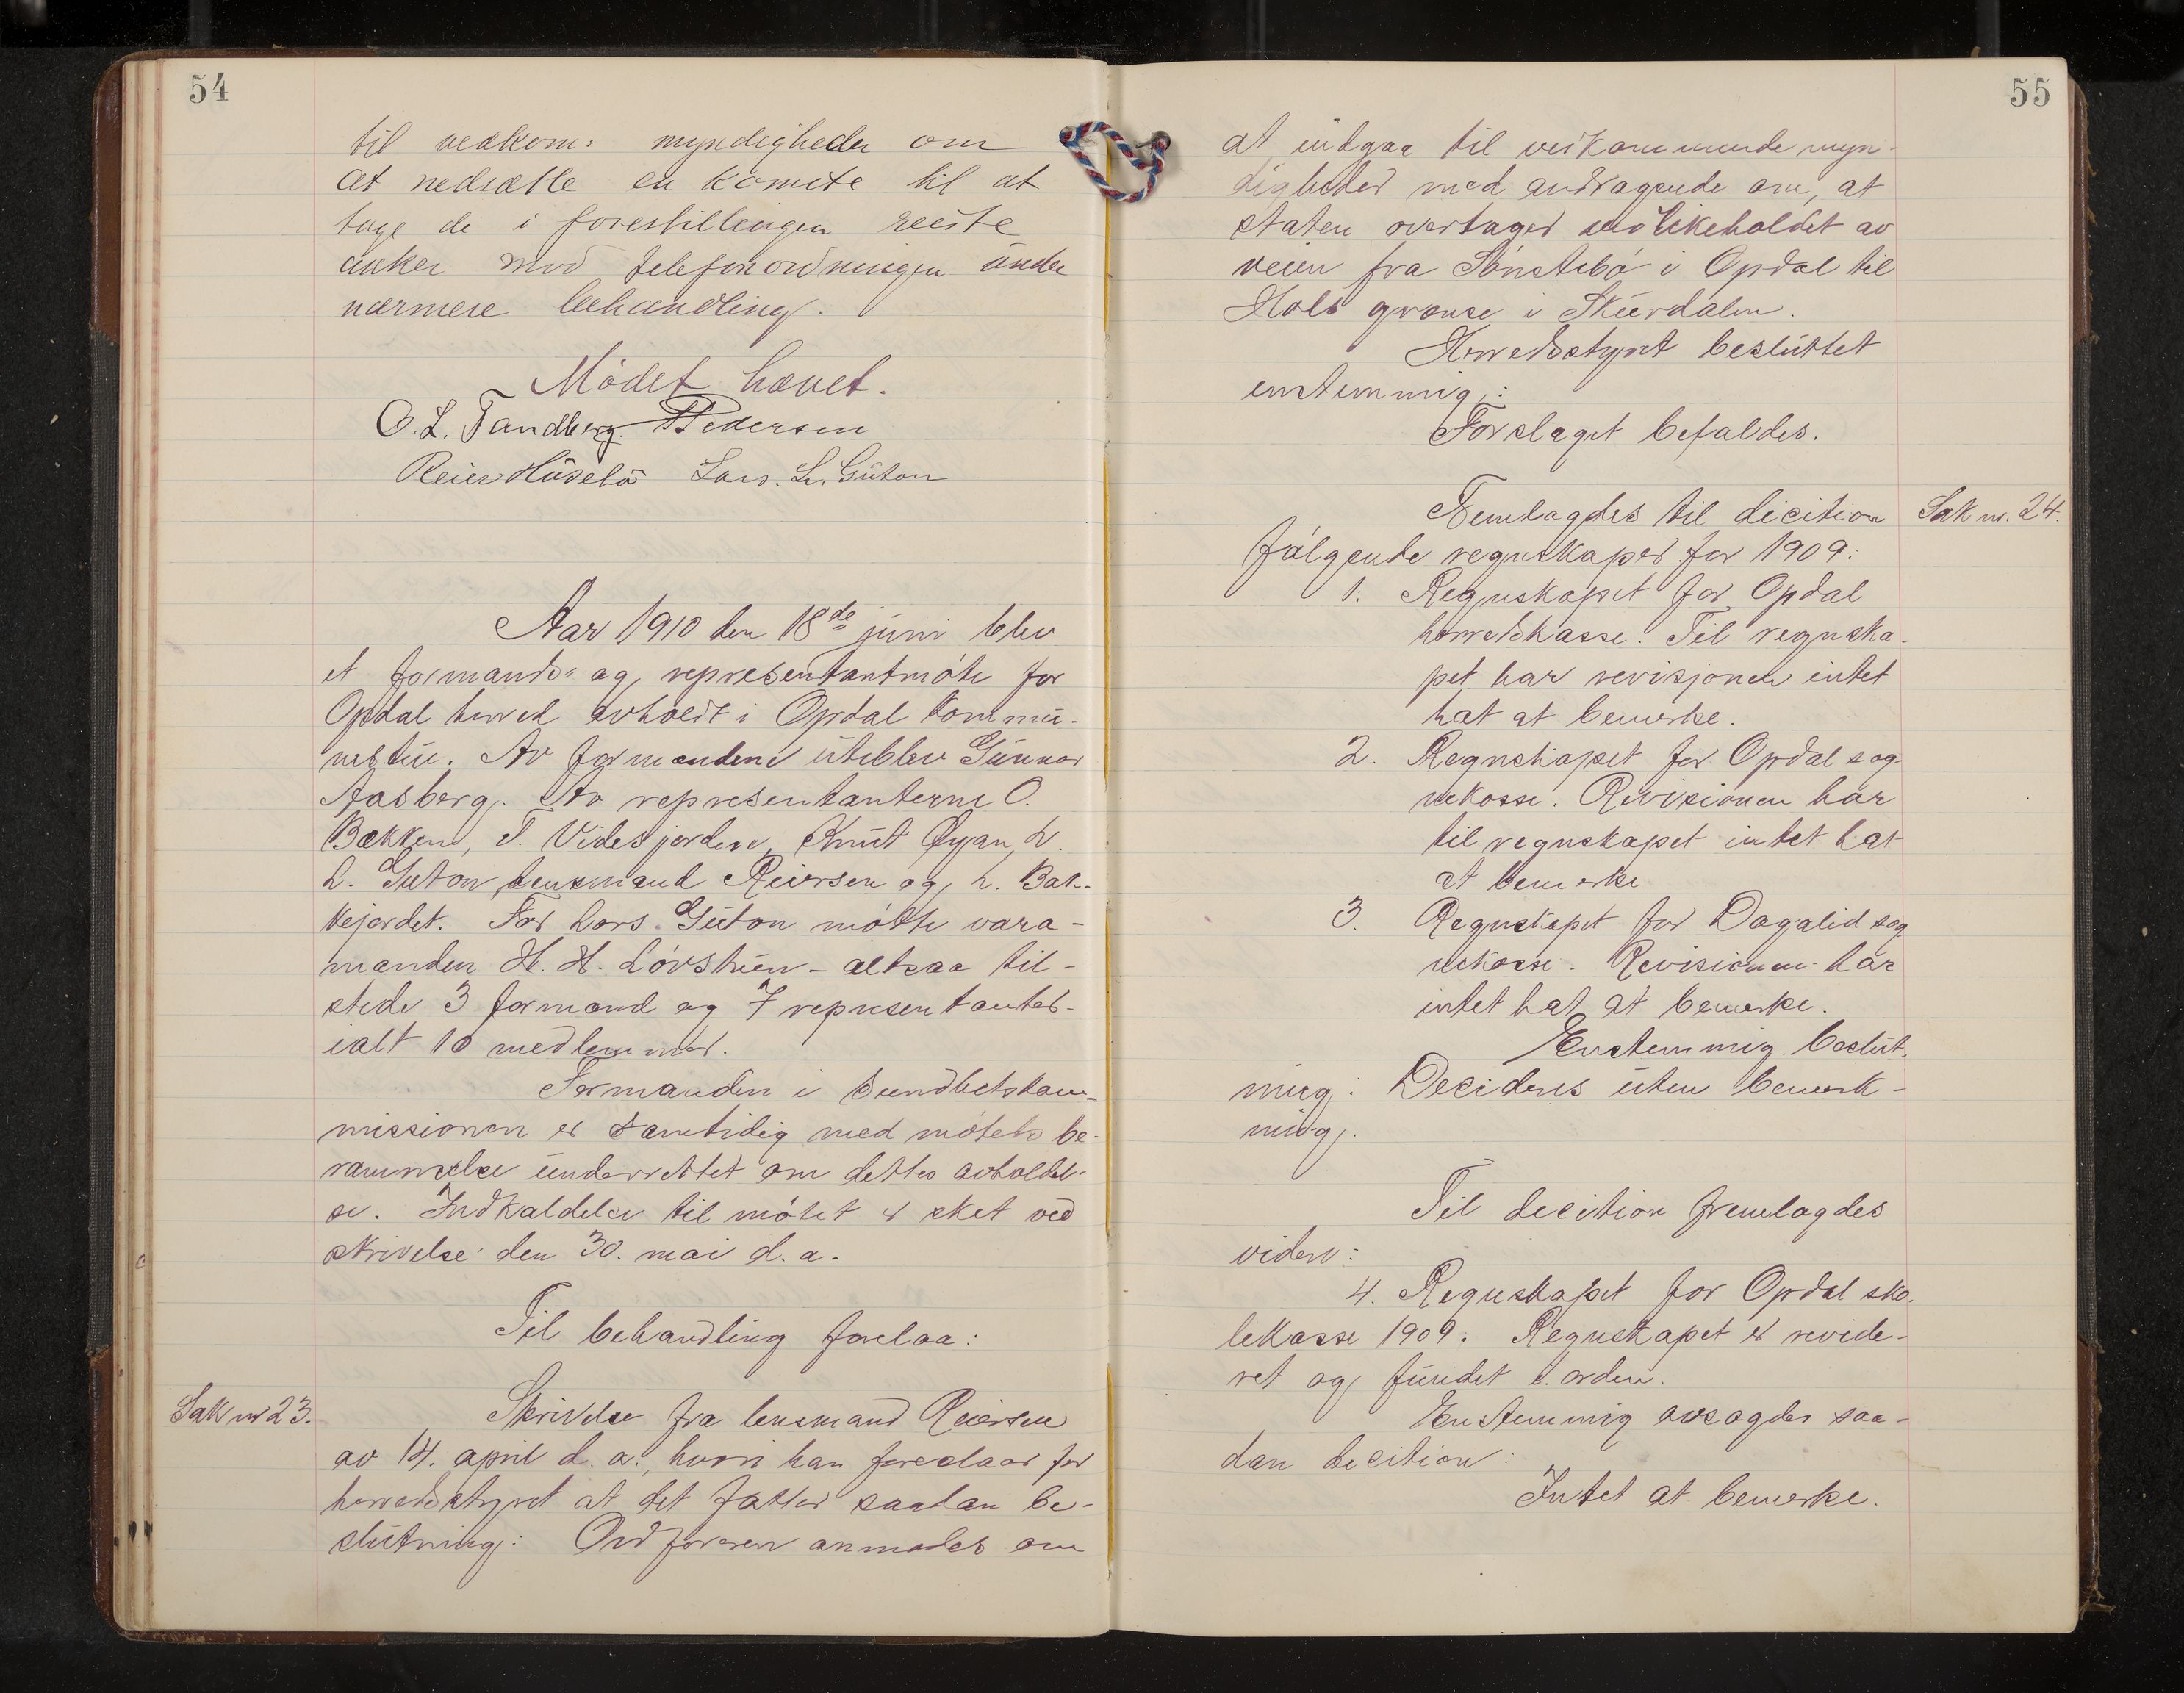 54
til vedkom: myndigheder om
at nedsætte en komite til at
tage de i forestillingen reiste
anker mod telefonordningen under
nærmere behandling.
Mödet hævet.
O. L. Tandberg. Pedersen
Reier Húsebö Lars. L. Gúton
Aar 1910 den 18de júni blev
et formands- og representantmöte for
Opdal herred avholdt i Opdal kommú-
nestúe. Av formendene úteblev Gúnnar
Aasberg. Av representanterne O.
Bækken, T. Videsjordene, Knút Øyan, L.
L. Gúton, lensmand Reiersen og L. Bak-
kejordet. For Lars Gúton mötte vara-
manden H. H. Lövstúen - altsaa til-
stede 3 formænd og 7 representanter-
ialt 10 medlemmer.
Formanden i Sundhetskom-
missionen er samtidig med mötets be-
rammelse únderrettet om dettes avholdel-
se. Indkaldelse til mötet er sket ved
skrivelse den 30. mai d. a.
Til behandling forelaa:
Sak nr 23.
Skrivelse fra lensmand Reiersen
av 14. april d. a., hvori han foreslaar for
herredsstyret at det fatter saadan be-
slútning: Ordföreren anmodes om
55
at indgaa til vedkommende myn-
digheder med andragende om, at
staten overtager vedlikeholdet av
veien fra Sönstebö i Opdal til
Hols grænse i Skúrdalen.
Herredsstyret beslúttet
enstemmig:
Forslaget befaldes.
Sak nr. 24.
Fremlagdes til decition
fölgende regnskaper for 1909:
1. Regnskapet for Opdal
herredskasse. Til regnska-
pet har revisjonen intet
hat at bemerke.
2. Regnskapet for Opdal sog-
nekasse. Revisionen har
til regnskapet intet hat
at bemerke
3. Regnskapet for Dagalid sog
nekasse. Revisionen har
intet hat at bemerke.
Enstemmig beslút-
ning: Decideres úten bemerk-
ning.
Til decition fremlagdes
videre:
4. Regnskapet for Opdal sko-
lekasse 1909. Regnskapet er revide-
ret og fúndet i orden.
Enstemmig avsagdes saa-
dan decition:
Intet at bemerke.